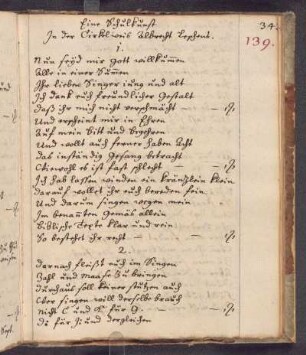 34.
139.
Eine Schulkunst
In der Cirklweis Albrecht Leschens.
1.
Nun seyd mir Gott willkumen
Alle in einer Sumen
Ihr lieben Singer jung und alt
Ich dank euch freundlicher gestalt
Daß ihr mich nicht verschmächt
Und erscheint mir in Ehren
Auf mein bitt und
Und wollt auch ferner haben Acht
Das inständig Gesang betracht
Obwohl es ist fast schlecht
Ich hab lassen winden ein Kräntzlein klein
Darauf wollet ihr euch bereden fein
Und darum singen gegen mein
In benannten Gemäs allein
Biblische Texte klar und rein
So besteht ihr recht
2.
Darnach fleißt euch im Singen
Zahl und Maase zu bringen
Durchaus soll keiner stützen auch
Aber singen will derselbe brauch
Nicht C und E für G.
Di für Ji und dergleichen